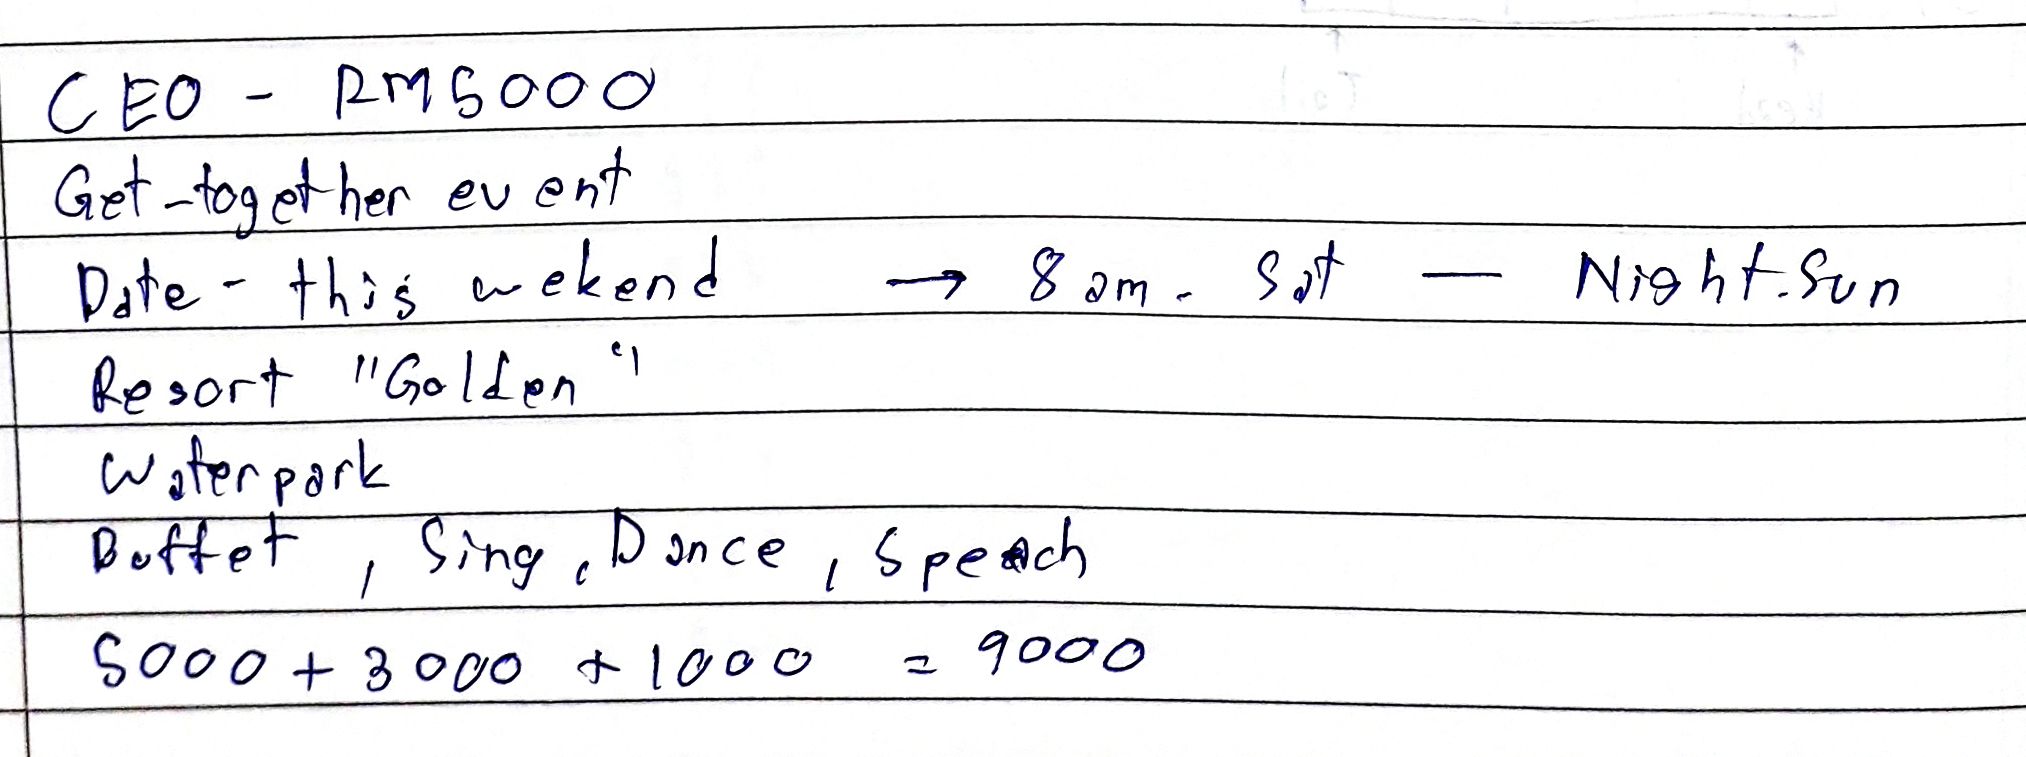 CEO - RM5000
Get-together event
Date - this wekend → 8 am. Sat — Night.Sun
Resort "Golden"
Waterpark
Buffet, Sing, Dance, Speach
5000 + 3000 + 1000 = 9000